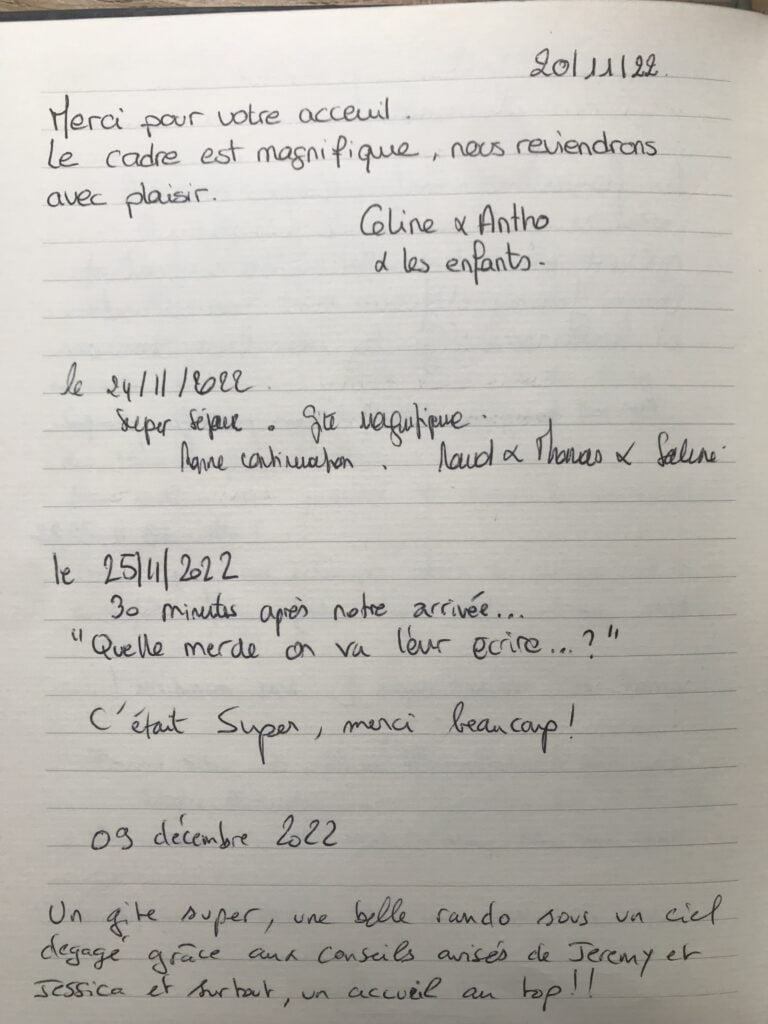 20/11/22.
Merci pour votre acceuil.
Le cadre est magnifique, nous reviendrons
avec plaisir.
Céline & Antho
& les enfants.
le 24/11/2022.
Super séjour. Gîte magnifique.
Bonne continuation. & Thomas &
le 25/11/2022
30 minutes après notre arrivée...
"Quelle merde on va leur écrire...?"
C'était Super, merci beaucoup!
09 décembre 2022
Un gîte super, une belle rando sous un ciel
dégagé grâce aux conseils avisés de Jeremy et
Jessica et surtout, un accueil au top!!